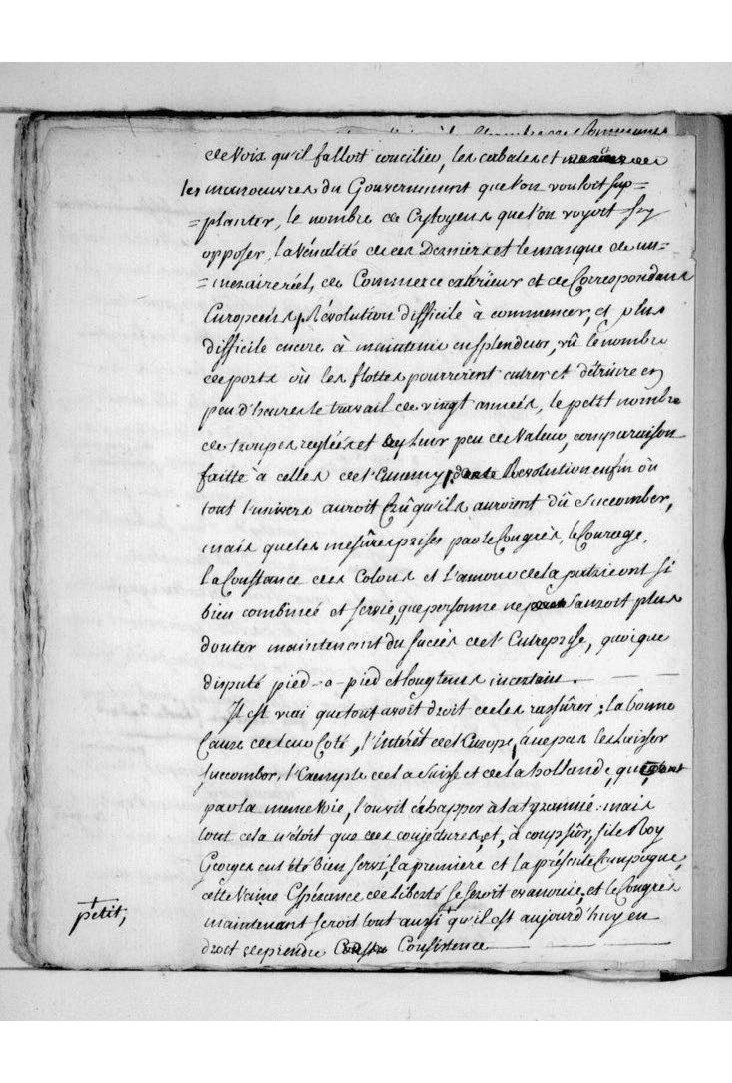 de voix qu'il falloit concilier, les cabales et
les manoeuvres du Gouvernement que l'on vouloit sup=
=planter, le nombre de Cytoyens que l'on voyoit s'y
opposer, la Vénalité de ces Derniers et le manque de nu=
=meraire réel, de Commerce extérieur et de Correspondans
Européens, Révolution difficile à commencer, et plus
difficile encore à maintenir en splendeur, vû le nombre
de ports où les flottes pourroient entrer et détruire en
peu d'heures le travail de vingt années, le petit nombre
de troupes reglées et leur peu de Valeur, comparaison
faitte à celles de l'Ennemy, Revolution enfin où
tout l'univers auroit Crû qu'ils auroient dû succomber,
mais que les mesûres prises par le Congrès, le Courage,
la Constance des Colons et L'amour de la patrie ont si
bien combinée et servie, que personne ne sauroit plus
douter maintenant du succès de l'Entreprise, quoique
disputé pied-a-pied et longtems incertain.
Il est vrai que tout avoit droit de les rassûrer; la bonne
Cause de leur Coté, l'intérêt de l'Europe, à ne pas les laisser
succomber, l'Exemple de la Suisse et de la hollande, qui
par la meme Voie, l'ont échapper à la tyrannie: mais
tout cela n'étoit que des conjectures, et, à coup sûr, si le Roy
Georges eut été bien servi, la premiere et la présente Campagne,
cette Vaine Espérance de liberté se seroit evanouie, et le Congrès
petit,
maintenant seroit tout aussi qu'il est aujourd'huy en
droit de prendre Consistence